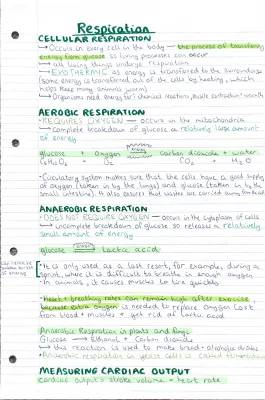 Respiration
CELLULAR RESPIRATION
→ Occurs in every cell in the body → the process of transferring
energy from glucose so living processes can occur
→ all living things undergo respiration
→ EXOTHERMIC as energy is transferred to the surroundings
(some energy is transferred out of the cells by heating, which
helps keep many animals warm)
→ Organisms need energy for: chemical reactions, muscle contraction + warmth
AEROBIC RESPIRATION
• REQUIRES OXYGEN → occurs in the mitochondria
→ complete breakdown of glucose so a relatively large amount
of energy
glucose + Oxygen → carbon dioxide + water
C6H12O6 O2 CO2 + H2O
• Circulatory system makes sure that the cells have a good supply
of oxygen (taken in by the lungs) and glucose (taken in by the
small intestine). It also assures that wastes are carried away
ANAEROBIC RESPIRATION
• DOES NOT REQUIRE OXYGEN → occurs in the cytoplasm of cells
→ incomplete breakdown of glucose so releases a relatively
small amount of energy
glucose → Lactic acid
• It is only used as a last resort, for example, during a
sprint, when it is difficult to breathe in enough oxygen.
• In animals, it causes muscles to tire quickly
• Heart + breathing rates can remain high after exercise,
because extra oxygen is needed to replace oxygen lost
from blood + muscles + get rid of lactic acid
Anaerobic Respiration in plants and fungi
Glucose → Ethanol + Carbon dioxide
→ this reaction is used to make bread + alcoholic drinks
• Anaerobic respiration in yeast cells is called fermentation
MEASURING CARDIAC OUTPUT
cardiac output = stroke volume × heart rate